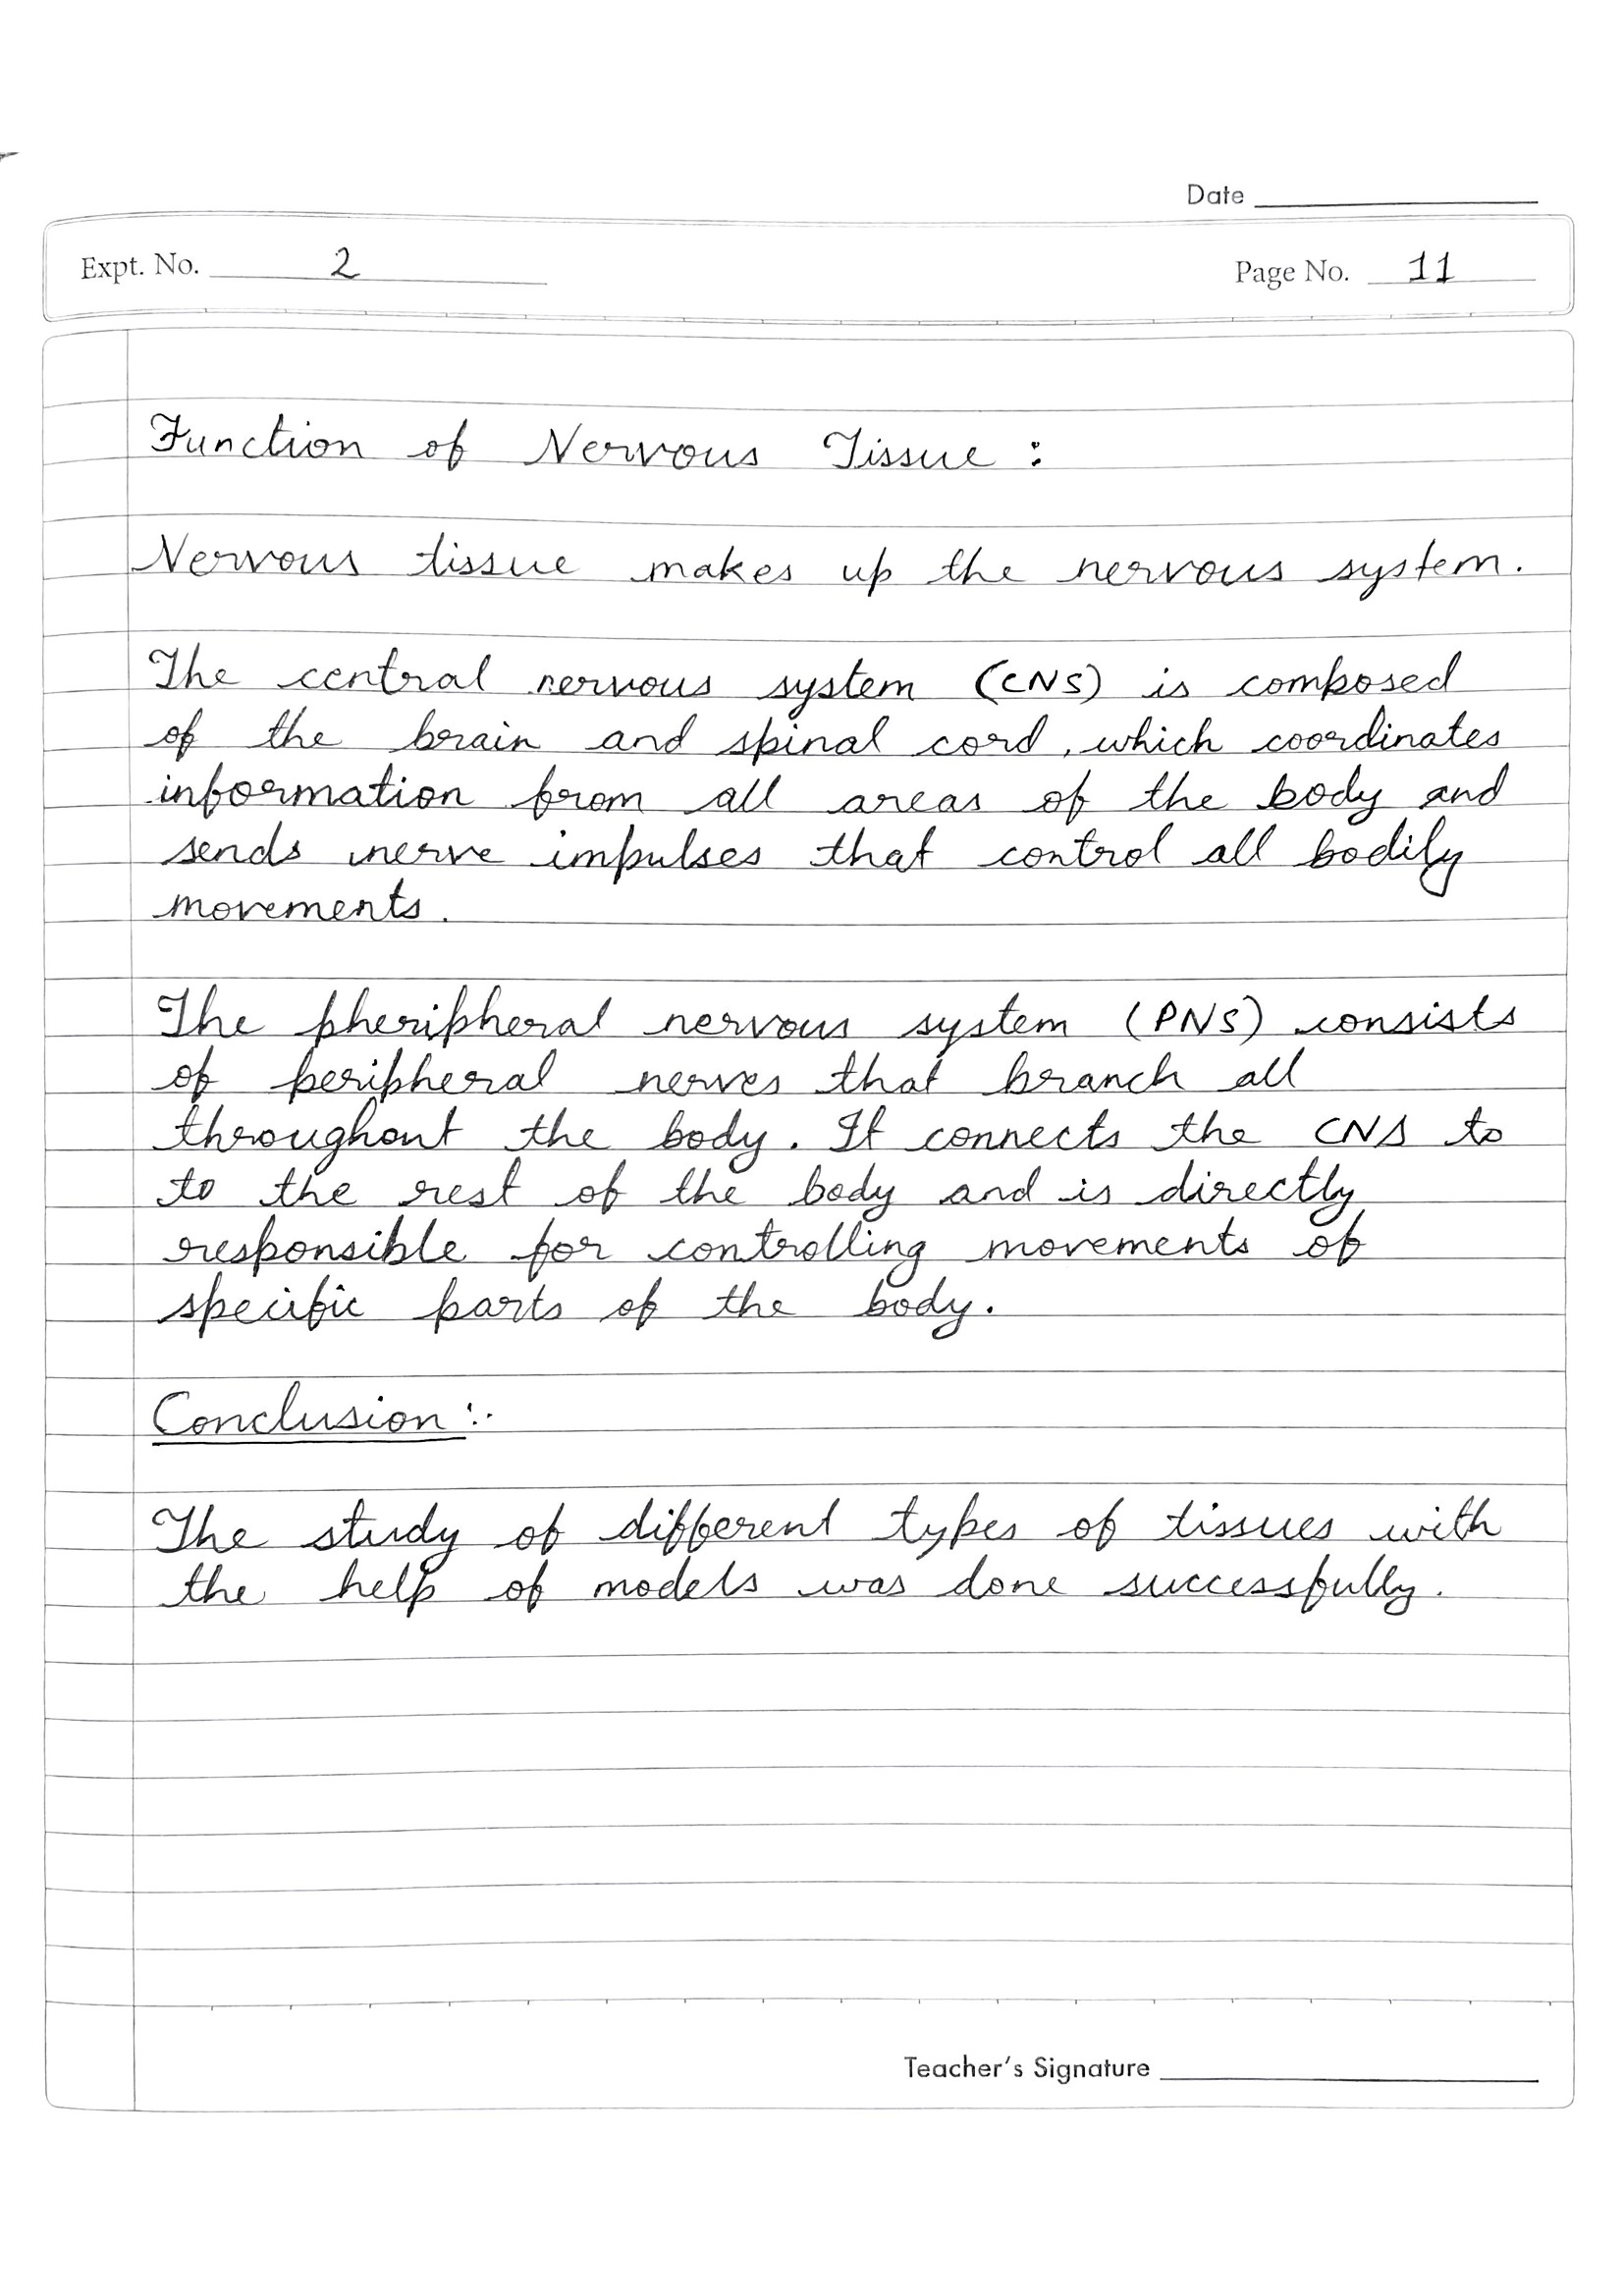 Date
Expt. No. 2
Page No. 11
Function of Nervous Tissue :
Nervous tissue makes up the nervous system.
The central nervous system (CNS) is composed
of the brain and spinal cord, which coordinates
information from all areas of the body and
sends nerve impulses that control all bodily
movements.
The pheripheral nervous system (PNS) consists
of peripheral nerves that branch all
throughout the body. It connects the CNS to
to the rest of the body and is directly
responsible for controlling movements of
specific parts of the body.
Conclusion :-
The study of different types of tissues with
the help of models was done successfully.
Teacher's Signature